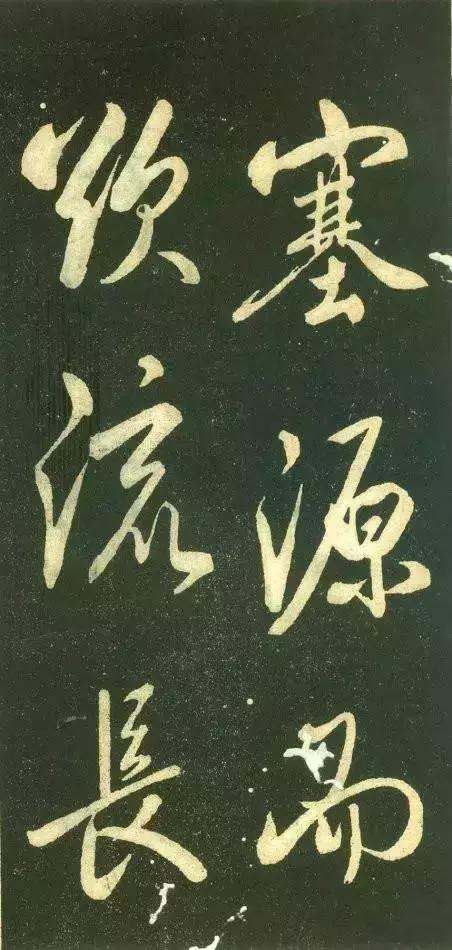 塞源而
欲流長